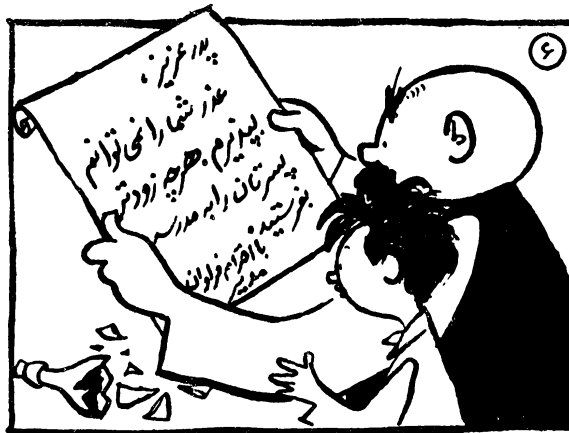 ۶
پدر عزیز،
عذر شما را نمی توانم
بپذیرم. هرچه زودتر
پسرتان را به مدرسه
بفرستید. با احترام فراوان
مدیر